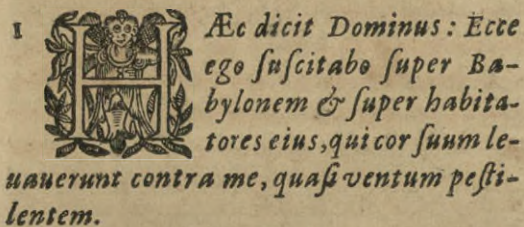 1 HÆc dicit Dominus: Ecce
ego ſuſcitabo ſuper Ba-
bylonem & ſuper habita-
tores eius, qui cor ſuum le-
uauerunt contra me, quaſi ventum peſti-
lentem.